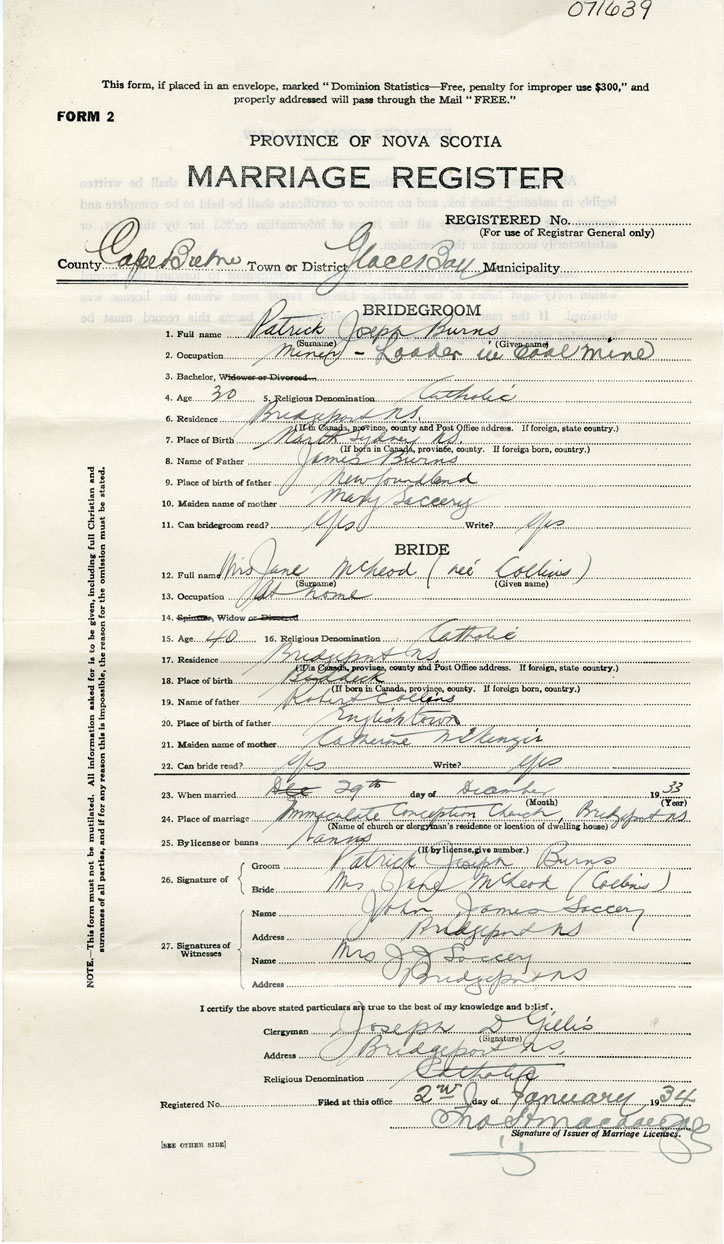 071639
This form, if placed in an envelope, marked "Dominion Statistics—Free, penalty for improper use $300," and
properly addressed will pass through the Mail "FREE."
FORM 2
PROVINCE OF NOVA SCOTIA
MARRIAGE REGISTER
REGISTERED No.
(For use of Registrar General only)
County Cape Breton Town or District Glace Bay Municipality
BRIDEGROOM
1. Full name Patrick Joseph Burns
(Surname) (Given name)
2. Occupation Miner - Loader in Coal Mine
3. Bachelor, Widower or Divorced
4. Age 30 5. Religious Denomination Catholic
6. Residence Bridgeport N.S.
(If in Canada, province, county and Post Office address. If foreign, state country.)
7. Place of Birth North Sydney N.S.
(If born in Canada, province, county. If foreign born, country.)
8. Name of Father James Burns
9. Place of birth of father Newfoundland
10. Maiden name of mother Mary Soccery
11. Can bridegroom read? Yes Write? Yes
BRIDE
12. Full name Mrs Jane McLeod (neé Collins)
(Surname) (Given name)
13. Occupation At home
14. Spinster, Widow or Divorced
15. Age 40 16. Religious Denomination Catholic
17. Residence Bridgeport N.S.
(If in Canada, province, county and Post Office address. If foreign, state country.)
18. Place of birth Baddeck
(If born in Canada, province, county. If foreign born, country.)
19. Name of father Robert Collins
20. Place of birth of father Englishtown
21. Maiden name of mother Catherine McKenzie
22. Can bride read? Yes Write? Yes
23. When married Dec 29th day of December 1933
(Month) (Year)
24. Place of marriage Immaculate Conception Church, Bridgeport N.S.
(Name of church or clergyman's residence or location of dwelling house)
25. By license or banns Banns
(If by license, give number.)
26. Signature of
Groom Patrick Joseph Burns
Bride Mrs Jane McLeod (Collins)
27. Signatures of Witnesses
Name John James Soccery
Address Bridgeport N.S.
Name Mrs J J Soccery
Address Bridgeport N.S.
I certify the above stated particulars are true to the best of my knowledge and belief.
Clergyman Joseph D Gillis
(Signature)
Address Bridgeport N.S.
Religious Denomination Catholic
Registered No. Filed at this office 2nd day of January 1934
Signature of Issuer of Marriage Licenses.
[SEE OTHER SIDE]
NOTE.—This form must not be mutilated. All information asked for is to be given, including full Christian and
surnames of all parties, and if for any reason this is impossible, the reason for the omission must be stated.